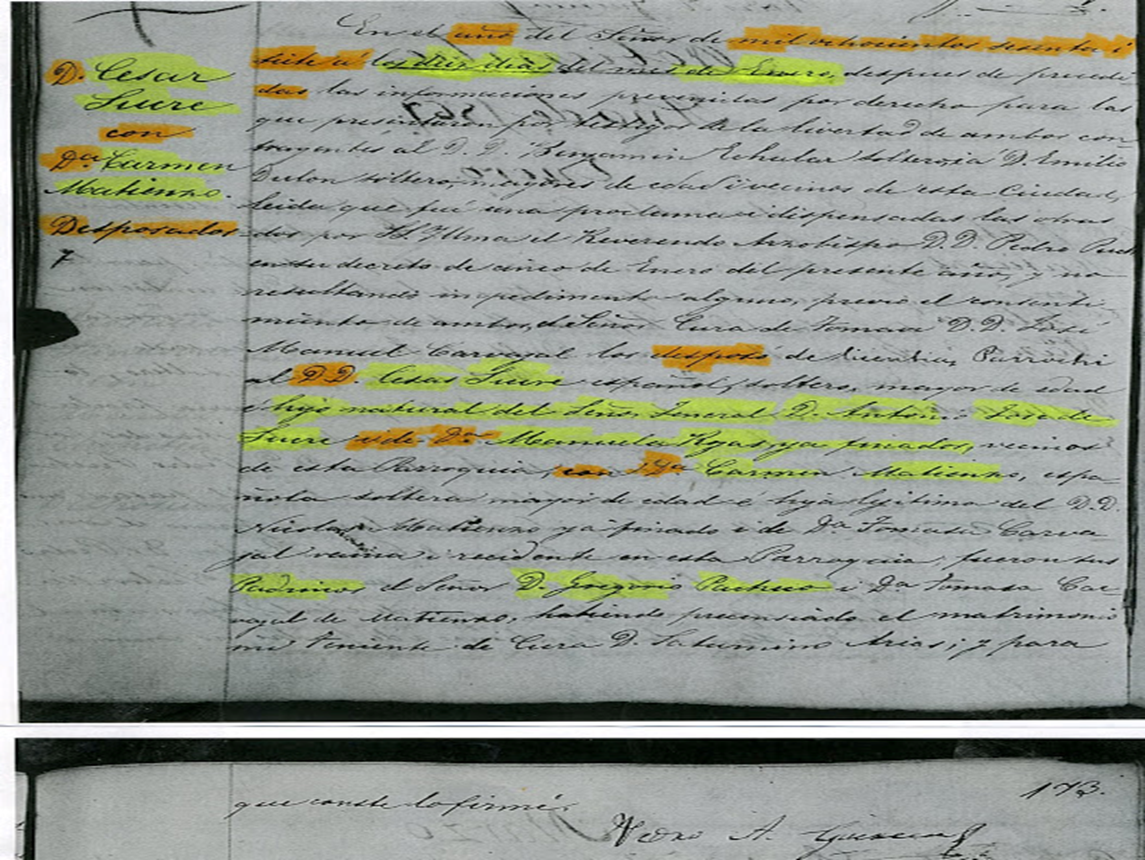 En el año del Señor de mil ochocientos sesenta i
D. Cesar
Sucre
con
Da. Carmen
Matienzo.
Desposados
7
siete á los diez dias del mes de Enero, despues de precedi
das las informaciones prevenidas por derecho para las
que presentaron por testigos de la livertad de ambos con
tragentes al D. D. Benjamin soltero i á D. Emilio
soltero, mayores de edad i vecinos de esta Ciudad,
leida que fué una proclama i dispensadas las otras
dos por S. S. Illma. el Reverendo Arzobispo D. D. Pedro Puch
en su decreto de cinco de Enero del presente año, y no
resultando impedimento alguno, previo el consenti
miento de ambos, el Señor Cura de Tomina D. D. José
Manuel Carvajal los desposó de licencia Parrochi
al D. D. Cesar Sucre español, soltero, mayor de edad
é hijo natural del Señor Jeneral D. Antonio José de
Sucre i de Da. Manuela Rojas ya finados, vecinos
de esta Parroquia, con Da. Carmen Matienzo, espa
ñola soltera mayor de edad é hija lejitima del D. D.
Nicolas Matienzo ya finado i de Da. Tomasa Carva
jal vecina i recidente en esta Parroquia, fueron sus
Padrinos el Señor D. Gregorio Pacheco i Da. Tomasa Car
vajal de Matienzo, habiendo precensiado el matrimonio
mi Teniente de Cura D. Saturnino Arias; y para
173.
que conste lo firmé.
Pedro A.